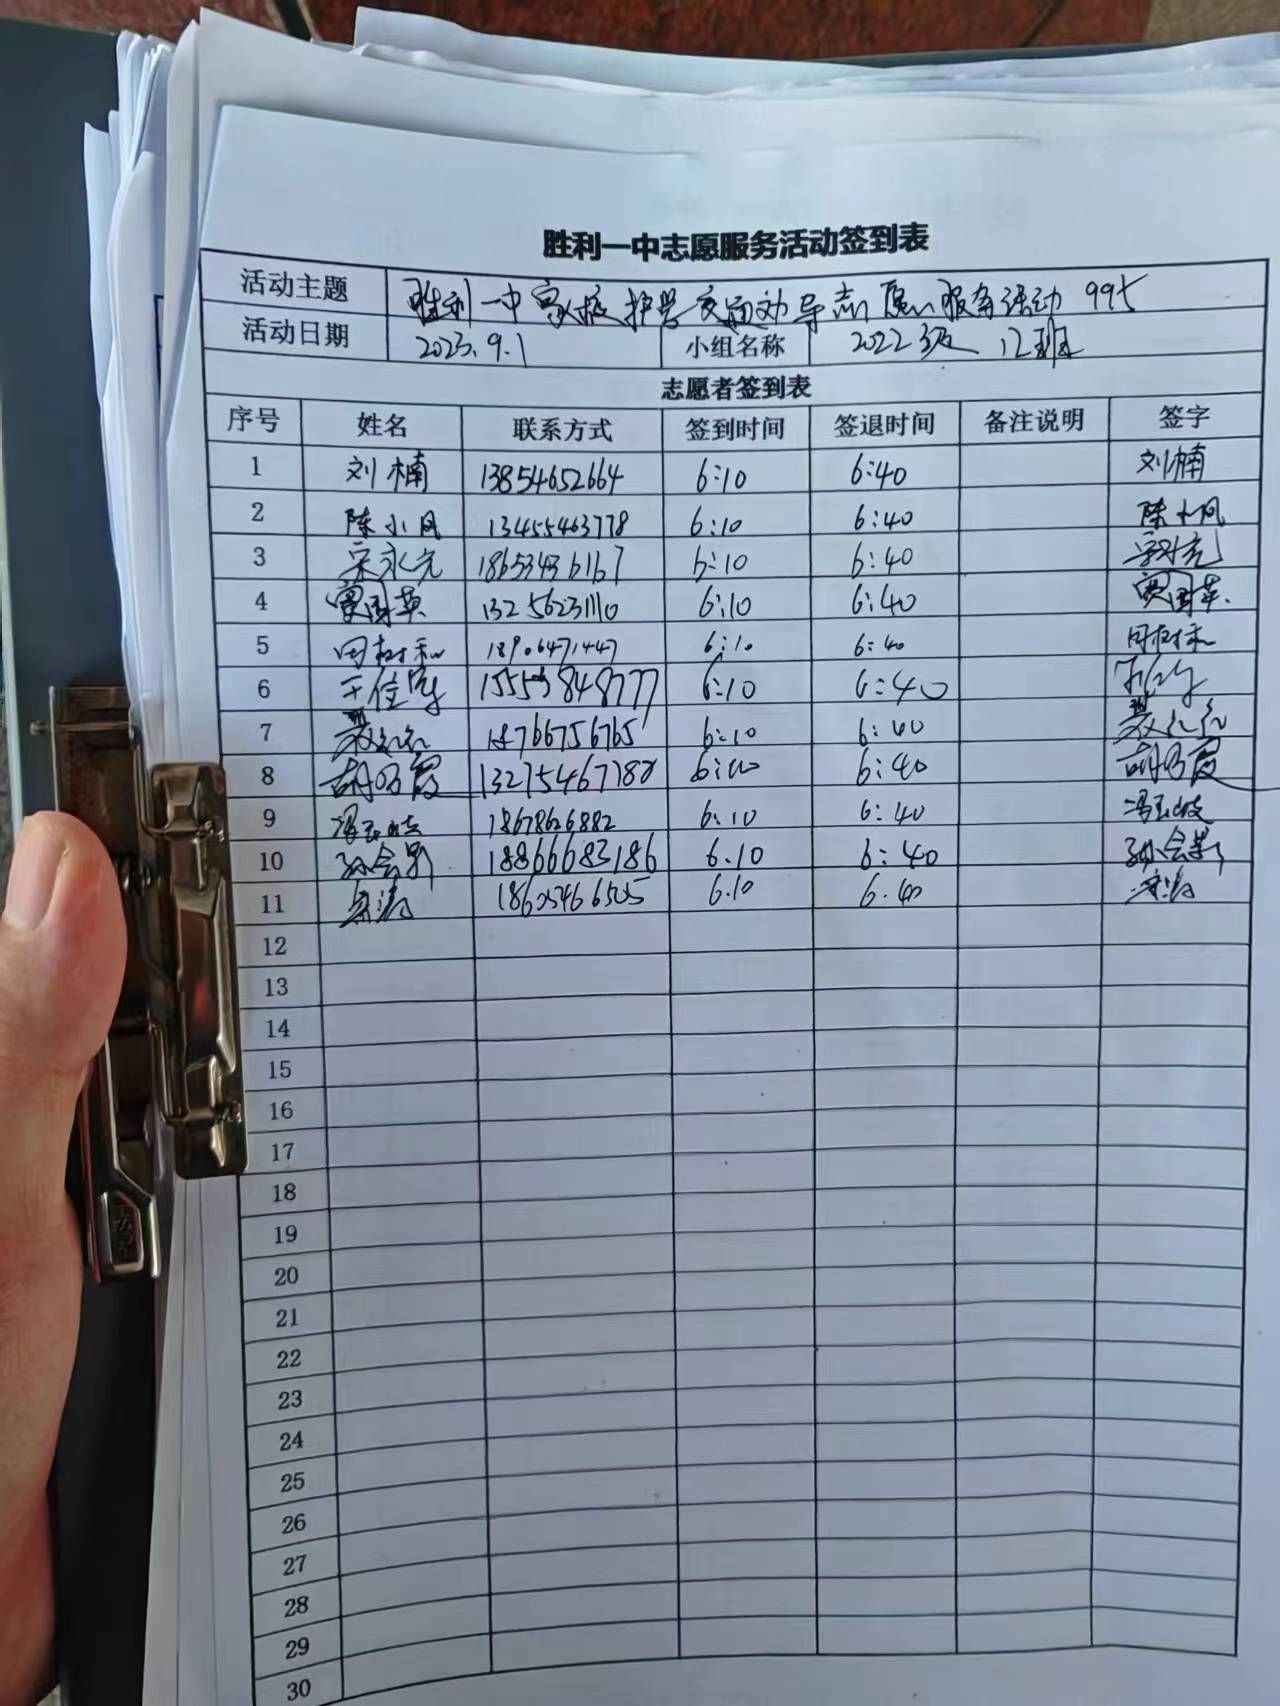 胜利一中志愿服务活动签到表
活动主题 胜利一中家校护学交通劝导志愿服务活动 995
活动日期 2023.9.1 小组名称 2022级 12班
志愿者签到表
序号 姓名 联系方式 签到时间 签退时间 备注说明 签字
1 刘楠 13854652664 6:10 6:40 刘楠
2 陈小凤 13455463778 6:10 6:40 陈小凤
3 宋永亮 6:10 6:40
4 贾国英 13256231110 6:10 6:40 贾国英
5 田树和 18906471447 6:10 6:40 田树和
6 15553848777 6:10 6:40
7 18766756765 6:10 6:40
8 6:10 6:40
9 18678626882 6:10 6:40
10 孙会影 18866683186 6.10 6:40 孙会影
11 6.10 6.40
12
13
14
15
16
17
18
19
20
21
22
23
24
25
26
27
28
29
30